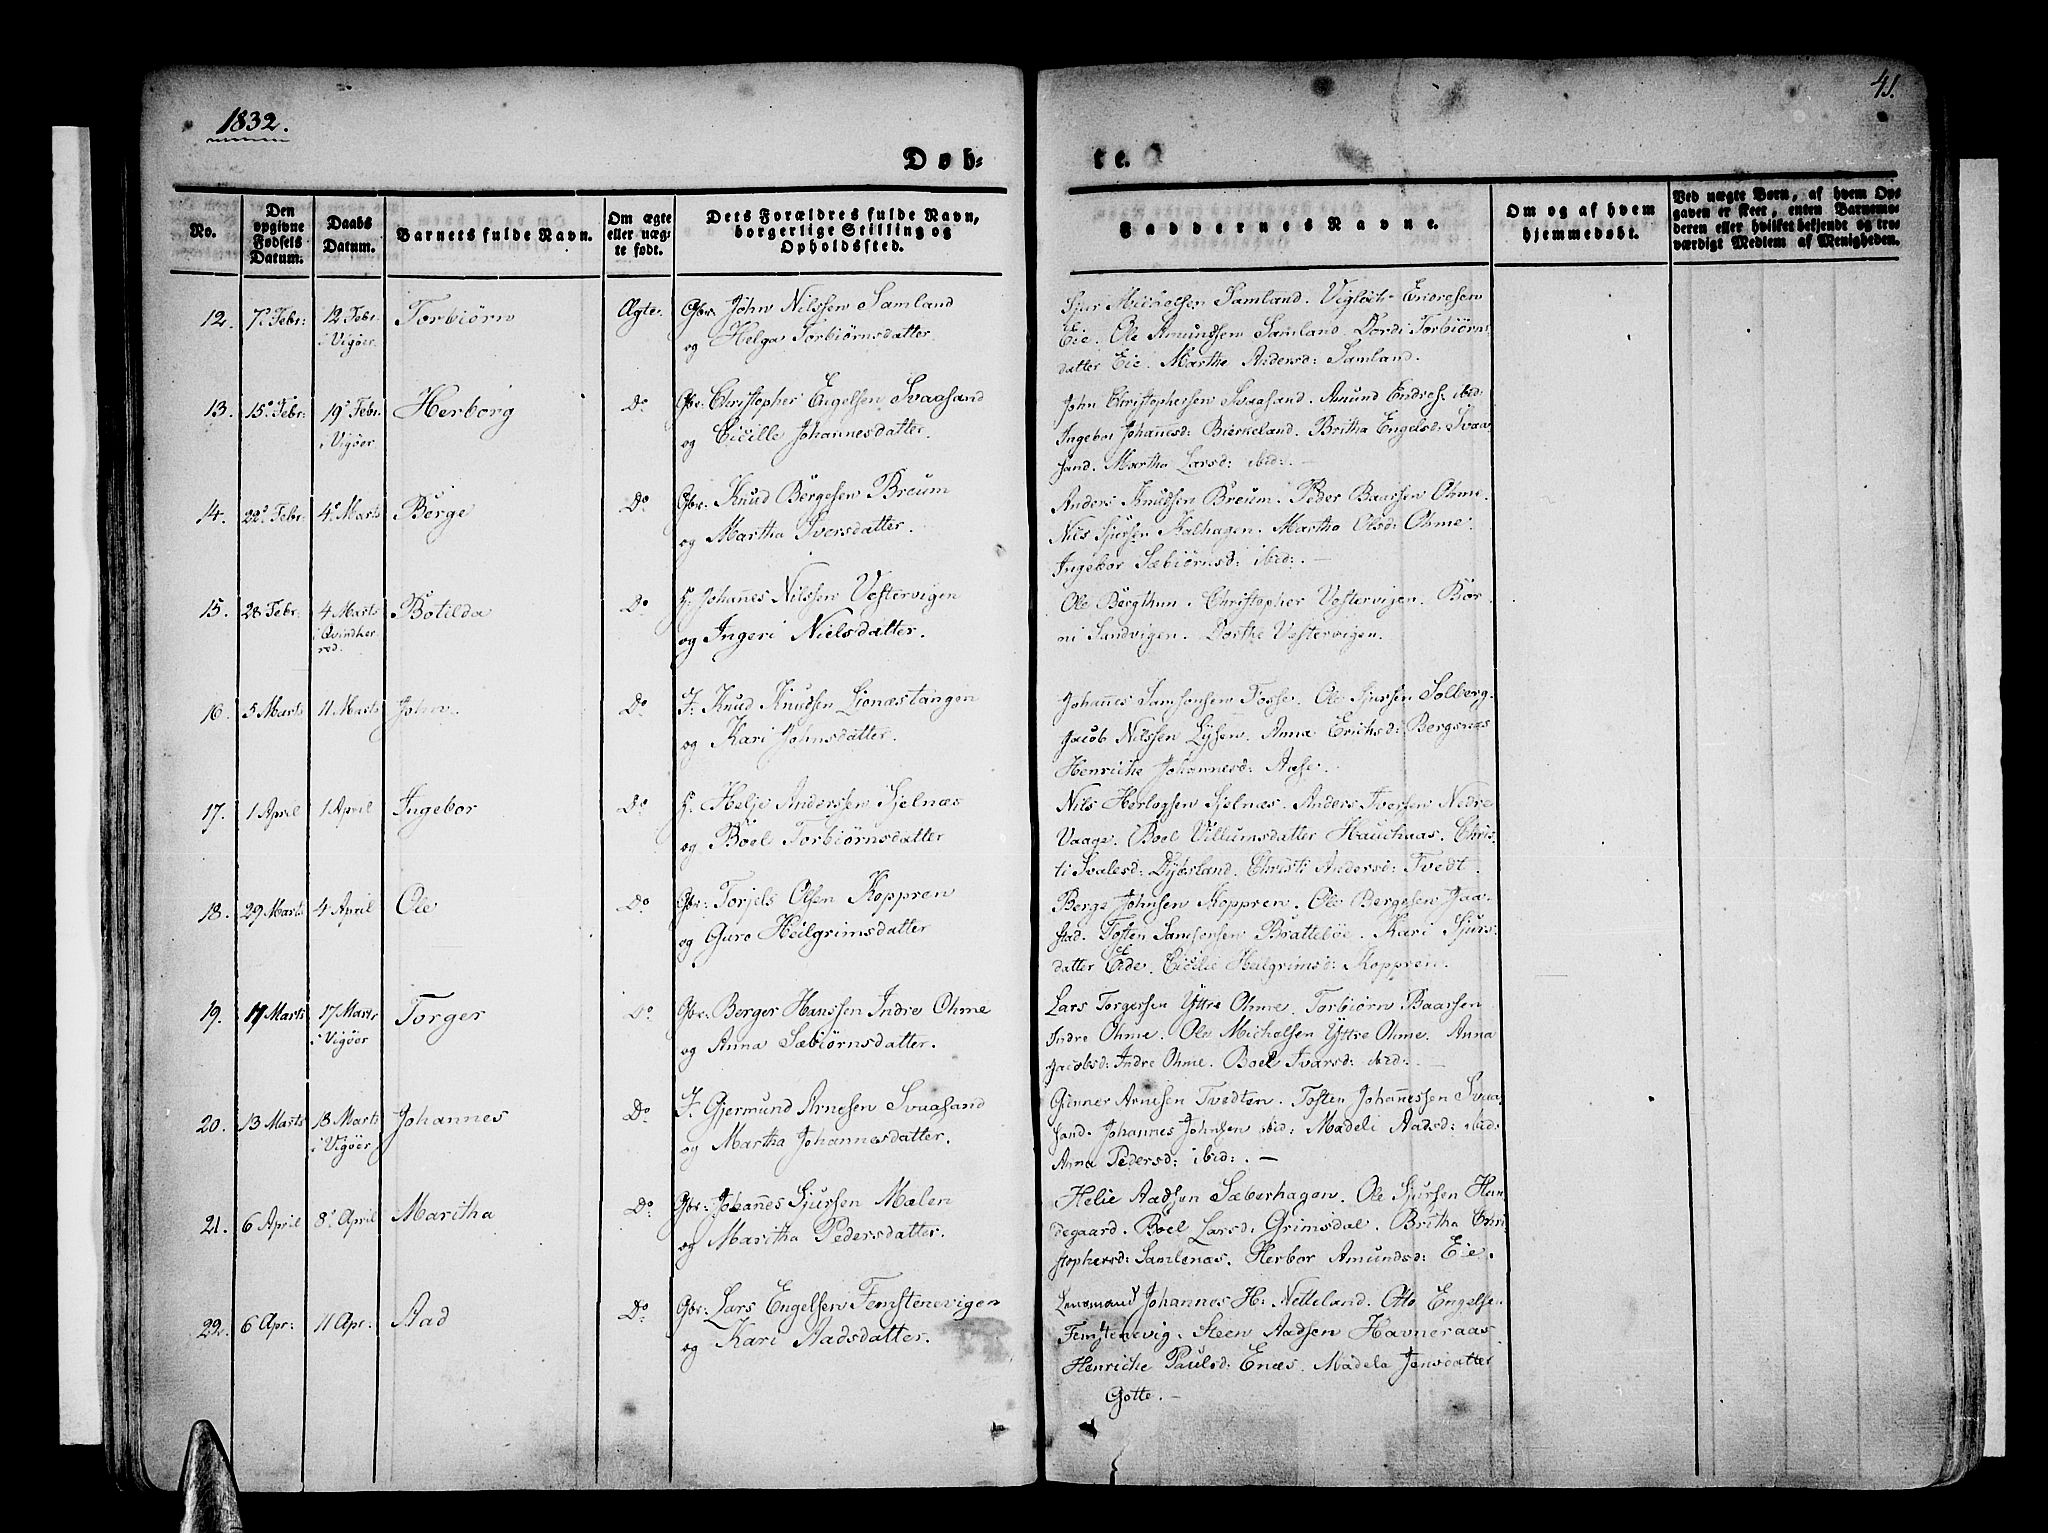 1832.
41.
Døb-
te.
No.
Den
opgivne
Fødsels
Datum.
Daabs
Datum.
Barnets fulde Navn.
Om ægte
eller uæg-
te født.
Dets Forældres fulde Navn,
borgerlige Stilling og
Opholdsfted.
Faddernes Navne.
Om og af hvem
hjemmedøbt.
Ved uægte Børn, af hvem Op-
gaven er skeet, enten Barnemo-
deren eller hvilket bekjendt og tro-
værdigt Medlem af Menigheden.
12.
7de Febr:
12 Febr.
i Vigöer
Torbiörn
Ægte.
Gbr. John Nilssen Samland
og Helga Torbiörnsdatter.
Sjur Michelsen Samland. Endresen
Eie. Ole Amundsen Samland. Dordi Torbiörns
datter Eie. Martha Andersd: Samland.
13.
15de Febr:
19de Febr.
i Vigöer
Herborg
Do
Gbr: Christopher Engelsen Svaasand
og Cicille Johannesdatter.
John Christophersen Svaasand. Amund Endres: ibid:
Ingebor Johannesd: Bierkeland. Britha Engelsd: Svaa
sand. Martha Larsd: ibid:. –
14.
22de Febr:
4de Marts
Börge
Do
Gbr: Knud Börgesen Breum
og Martha Iversdatter.
Anders Knudsen Breum. Peder Baarsen Ohme.
Nils Sjursen Kalhagen. Martha Olsd: Ohme.
Ingebor Sæbiörnsd: ibid:. –
15.
28 Febr:
4 Marts
i Qvindher
red.
Botilda
Do
H: Johannes Nilssen Vestervigen
og Ingeri Nielsdatter.
Ole Bergthun. Christopher Vestervigen. Bör
ni Sandvigen. Dorthe Vestervigen.
16.
5 Marts
11 Marts
John
Do
I: Knud Knudsen Lionæstangen
og Kari Johnsdatter.
Johannes Samsonsen Fosse. Ole Sjursen Solberg.
Jacob Nilssen Lysen. Anna Erichsd: Bergsnæs
Henriche Johannesd: Aase.
17.
1 April
1 April
Ingebor
Do
H: Helje Anderssen Sjelnæs
og Böel Torbiörnsdatter
Nils Herlogsen Sjelnæs. Anders Iversen Nedre
Vaage. Boel Villumsdatter Hauchaas. Chris
ti Svalesd: Dybsland. Christi Andersd: Tvedt.
18.
29 Marts
4 April
Ole
Do
Gbr: Torjels Olsen Koppren
og Guro Heilgrimsdatter
Berge Johnsen Koppren. Ole Bergesen Jaa-
stad. Tosten Samsonsen Bratteböe. Kari Sjurs-
datter Eide. Cicilie Heilgrimsd: Koppren.
19.
17 Marts
17 Marts
i Vigöer
Torger
Do
Gbr: Berger Hanssen Indre Ohme
og Anna Sæbiörnsdatter.
Lars Torgersen Yttre Ohme. Torbiörn Baarsen
Indre Ohme. Ole Michelsen Yttre Ohme. Anna
Jacobsd: Indre Ohme. Boel Ivarsd: ibid:
20.
13 Marts
18 Marts
i Vigöer
Johannes
Do
I: Gjermund Arnesen Svaasand
og Martha Johannesdatter.
Gunner Arnesen Tvedten. Tosten Johannessen Svaa
sand. Johannes Johnsen ibid: Madeli Aadsd: ibid:
Anna Pedersd: ibid:. –
21.
6 April
8de April
Maritha
Do
Gbr: Johannes Sjursen Mælen
og Maritha Pedersdatter.
Helie Aadsen Sæberhagen. Ole Sjursen Hen
degaard. Boel Larsd: Grimsdal. Britha Chri
stophersd: Samlenæs. Herbor Amundsd: Eie.
22.
6 Apr:
11 Apr:
Aad
Do
Gbr: Lars Engelsen Femstenevigen
og Kari Aadsdatter.
Lensmand Johannes H: Netteland. Otto Engelsen
Femstenevig. Steen Aadsen Havneraas.
Henriche Paulsd: Enæs. Madela Jensdatter
Gotte. –